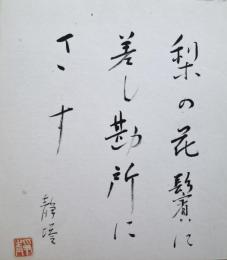 梨の花鬢に
差し勘所に
さす
静塔